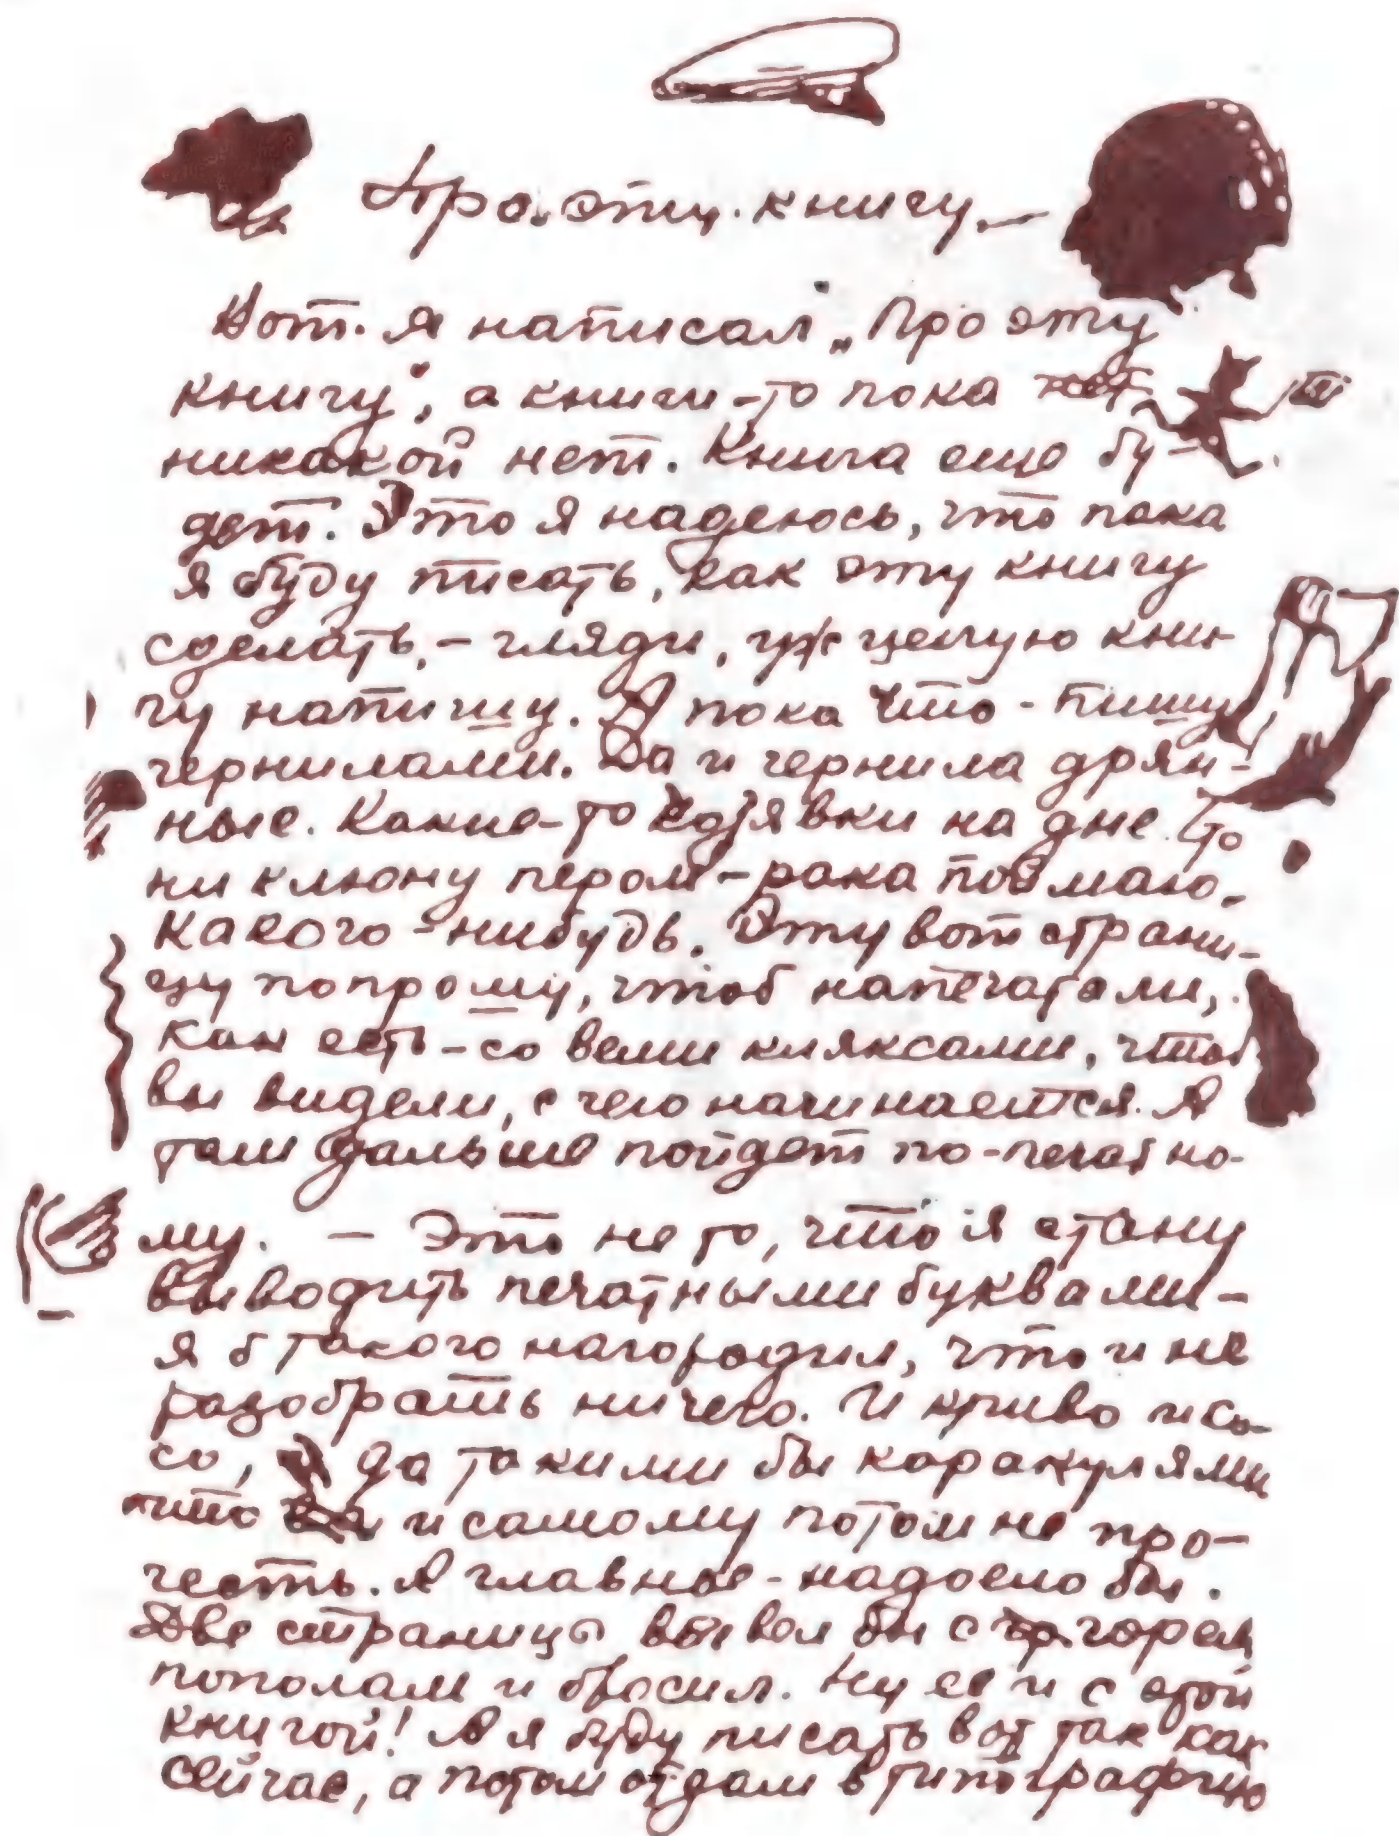 Про эту книгу.
Вот. Я написал „Про эту
книгу“, а книги-то пока
никакой нет. Книга еще бу-
дет. Это я надеюсь, что пока
я буду писать, как эту книгу
сделать, - гляди, уж целую кни-
гу напишу. А пока что - пишу
чернилами. Да и чернила дрян-
ные. Какие-то козявки на дне. Что
ни клюну пером - рака поймаю
какого-нибудь. Эту вот страни-
цу попрошу, чтоб напечатали,
как есть - со всеми кляксами, чтоб
вы видели, с чего начинается. А
там дальше пойдет по-печатно-
му. - Это не то, что я стану
выводить печатными буквами -
я б такого нагородил, что и не
разобрать ничего. И криво и ко-
со, да такими бы каракулями
что и самому потом не про-
честь. А главное - надоело бы.
Две страницы вывел бы с горем
пополам и бросил. Ну ее и с этой
книгой! А я буду писать вот так как
сейчас, а потом отдам в типографию